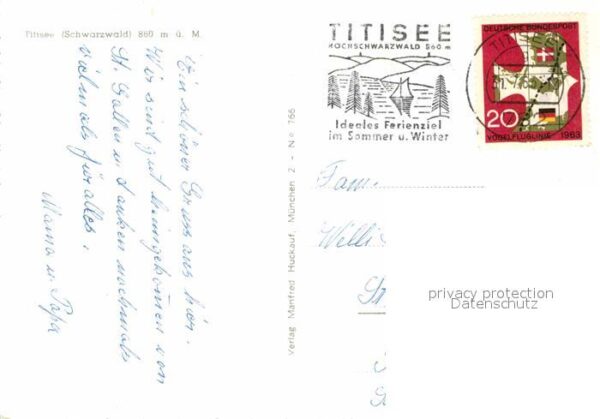 Titisee (Schwarzwald) 860 m ü. M.
Ein schöner Gruss aus hier.
Wir sind gut heimgekommen von
St. Gallen u. danken nochmals
vielmals für alles.
Mama u. Papa
Verlag Manfred Huckauf, München 2 - Nº 766
TITISEE
HOCHSCHWARZWALD 860 m
Ideales Ferienziel
im Sommer u. Winter
DEUTSCHE BUNDESPOST
20
VOGELFLUGLINIE 1963
TITISEE
Fam.
Willi
privacy protection
Datenschutz